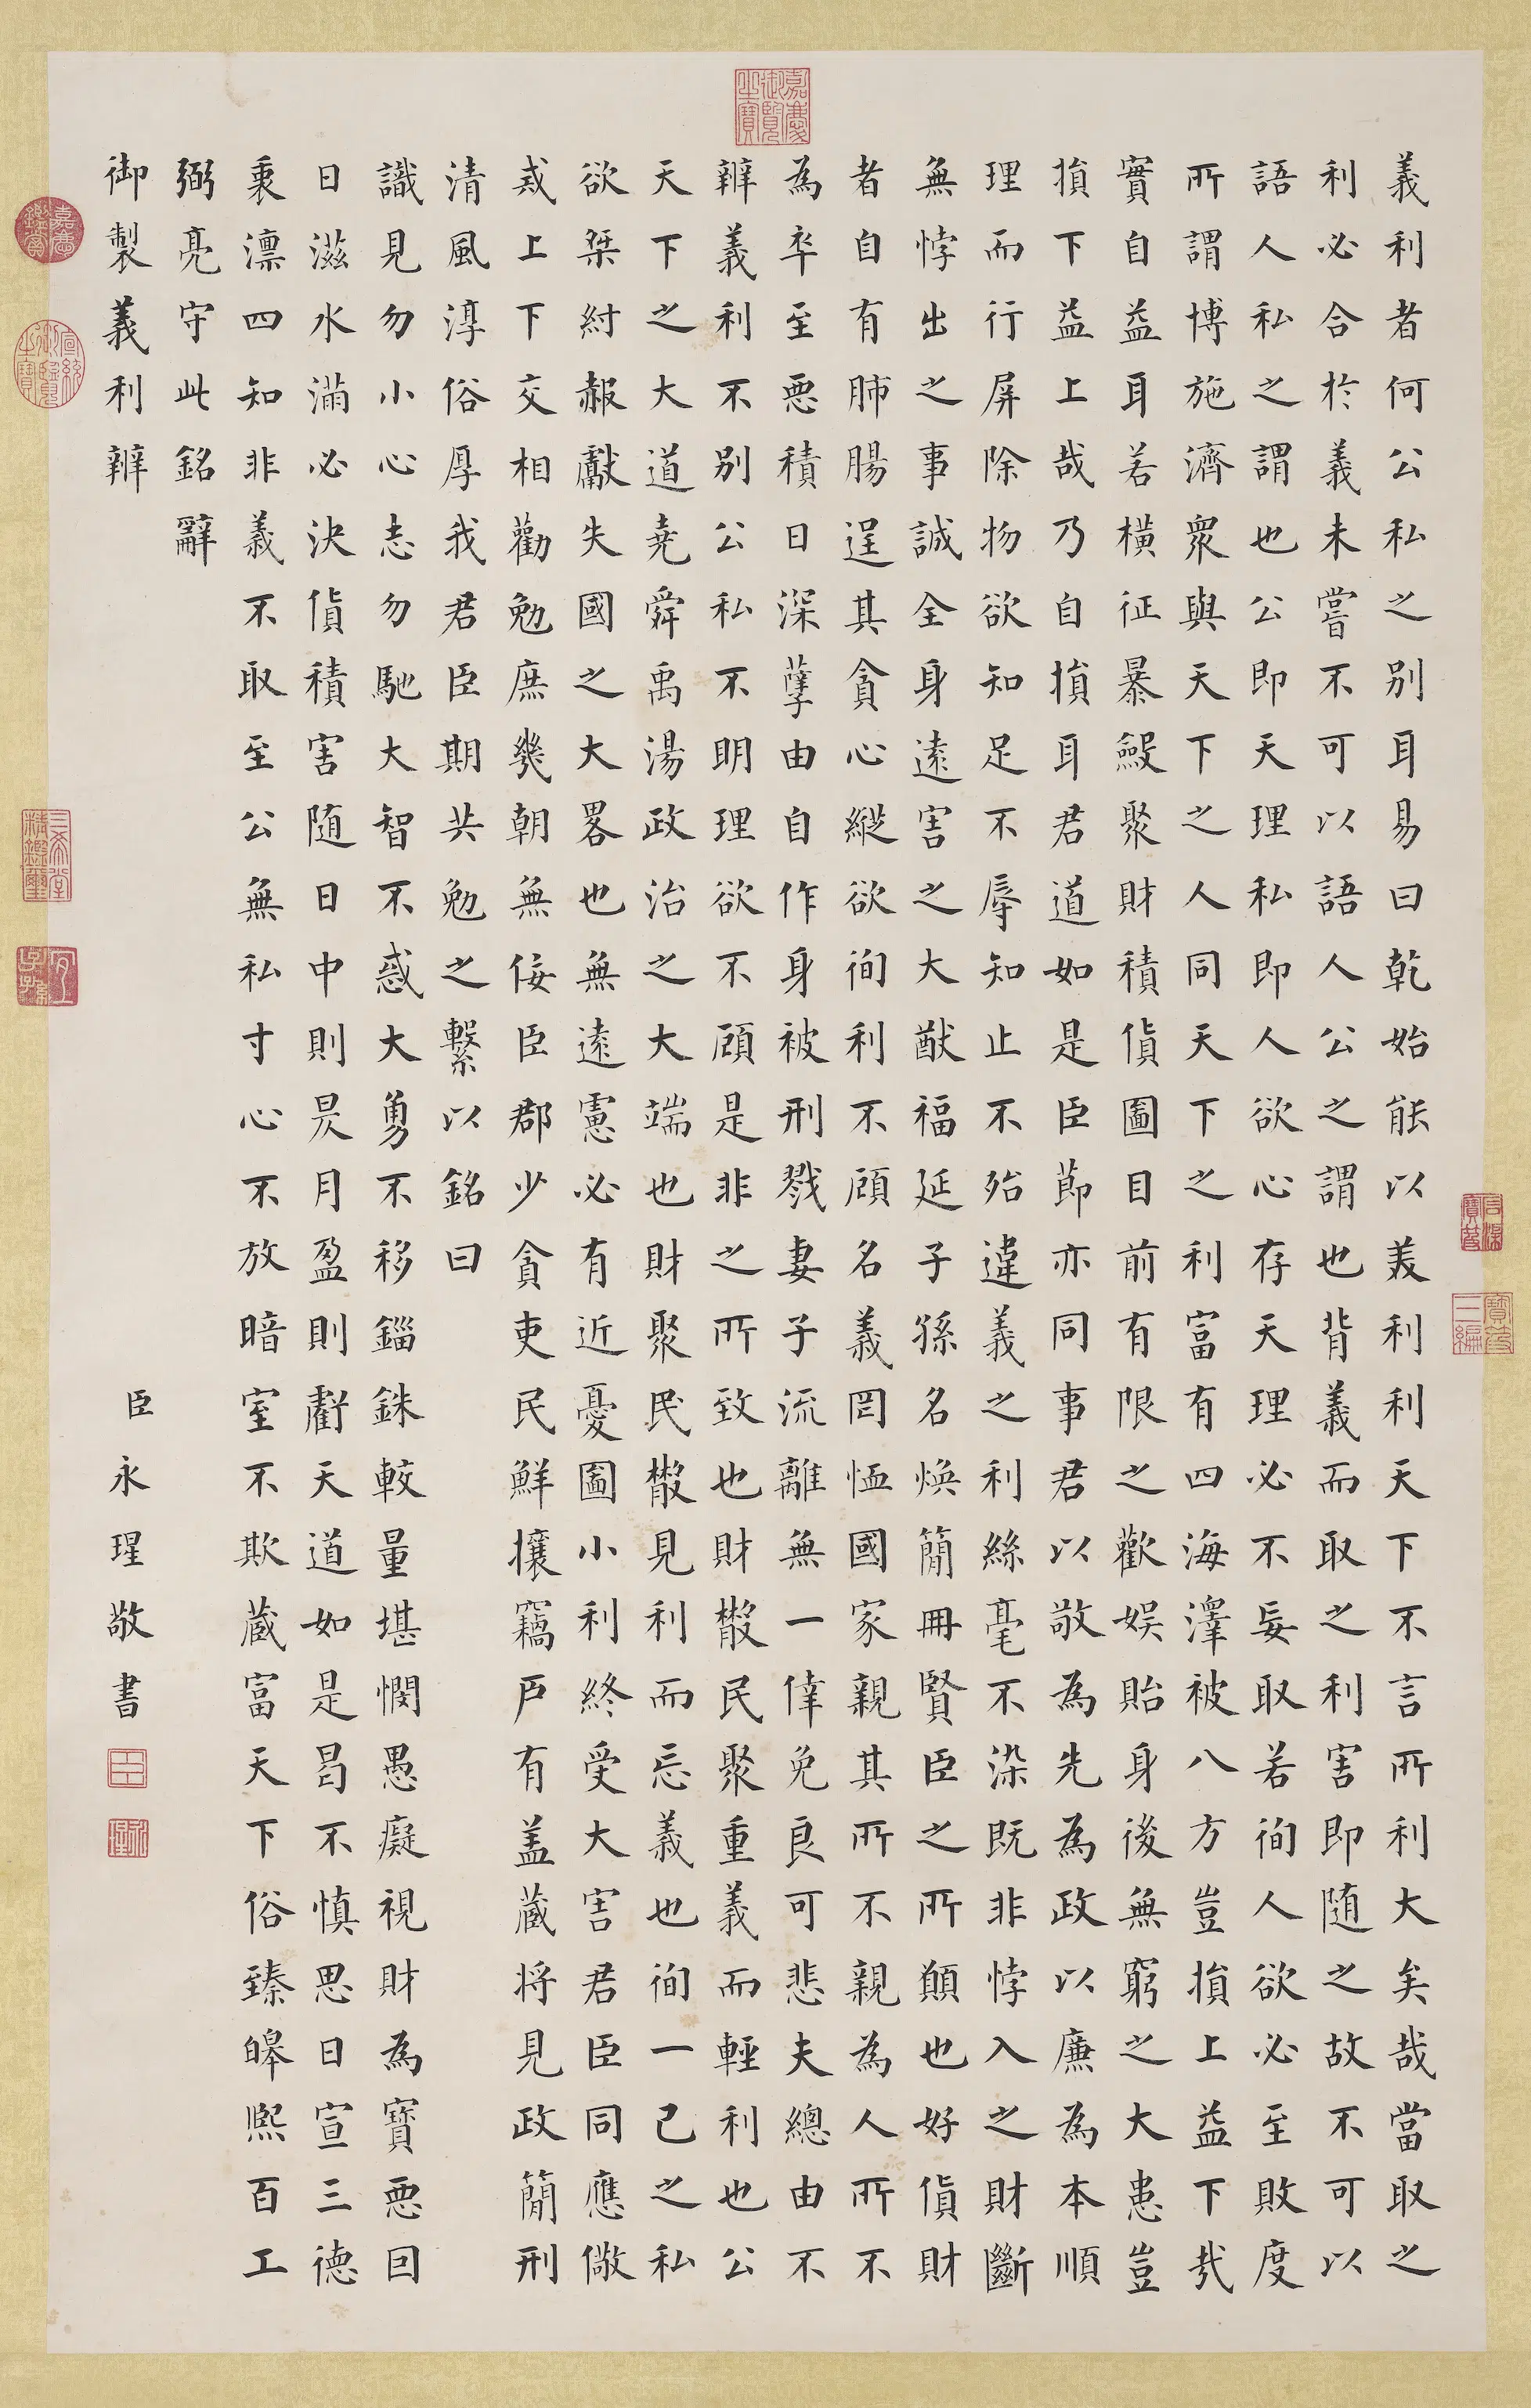 義利者何公私之別耳易曰乾始能以美利利天下不言所利大矣哉當取之
利必合於義未嘗不可以語人公之謂也背義而取之利害即随之故不可以
語人私之謂也公即天理私即人欲心存天理必不妄取若徇人欲必至敗度
所謂博施濟衆與天下之人同天下之利富有四海澤被八方豈損上益下哉
實自益耳若橫征暴斂聚財積貨圖目前有限之歡娱貽身後無窮之大患豈
損下益上哉乃自損耳君道如是臣節亦同事君以敬為先為政以廉為本順
理而行屏除物欲知足不辱知止不殆違義之利絲毫不染既非悖入之財斷
無悖出之事誠全身遠害之大猷福延子孫名煥簡冊賢臣之所願也好貨財
者自有肺腸逞其貪心縱欲徇利不顧名義罔恤國家親其所不親為人所不
為卒至惡積日深孽由自作身被刑戮妻子流離無一倖免良可悲夫總由不
辨義利不別公私不明理欲不顧是非之所致也財散民聚重義而輕利也公
天下之大道堯舜禹湯政治之大端也財聚民散見利而忘義也徇一己之私
欲桀紂赧獻失國之大畧也無遠慮必有近憂圖小利終受大害君臣同應儆
戒上下交相勸勉庶幾朝無佞臣郡少貪吏民鮮攘竊戶有盖藏将見政簡刑
清風淳俗厚我君臣期共勉之繫以銘曰
識見勿小心志勿馳大智不惑大勇不移錙銖較量堪憫愚癡視財為寶惡因
日滋水滿必決貨積害随日中則昃月盈則虧天道如是曷不慎思日宣三德
秉凛四知非義不取至公無私寸心不放暗室不欺藏富天下俗臻皞熙百工
弼亮守此銘辭
御製義利辨
臣永瑆敬書
嘉慶御覽之寶
嘉慶鑑賞
宣統御覽之寶
三希堂精鑑璽
宜子孫
石渠寶笈
寶笈三編
臣
永瑆